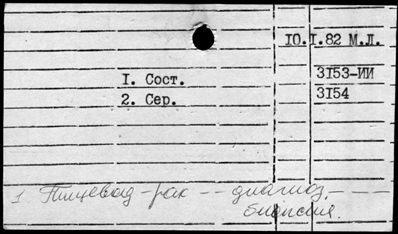 10.I.82 М.Л.
I. Сост.
3153-ИИ
2. Сер.
3154
1 Пищевод - рак -- диагноз. ---
биопсия.